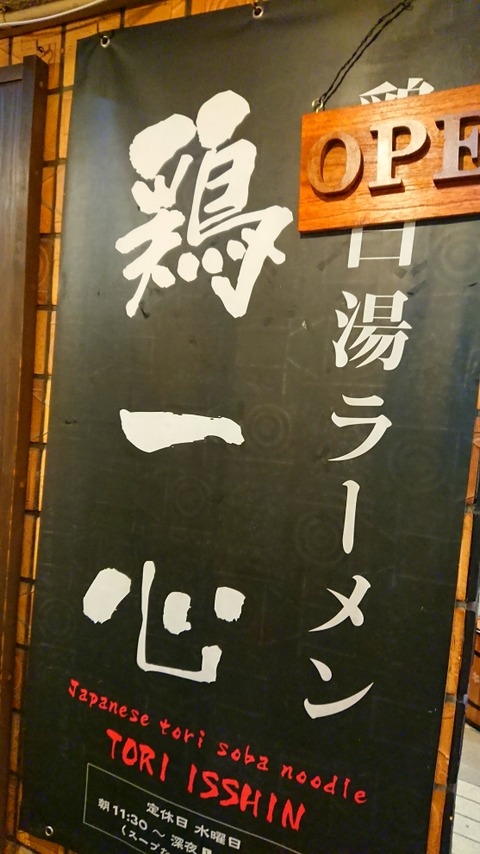 OPE
鶏白湯ラーメン
鶏一心
Japanese tori soba noodle
TORI ISSHIN
定休日 水曜日
朝11:30 ～ 深夜
(スープ